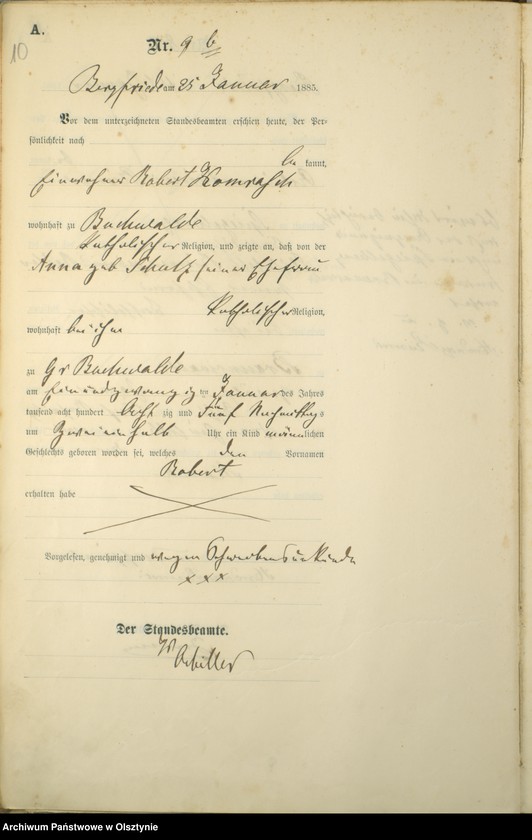 A.
10
Nr. 9 b
Bergfriede am 25 Januar 1885.
Vor dem unterzeichneten Standesbeamten erschien heute, der Per-
sönlichkeit nach
be kannt,
Einwohner Robert
wohnhaft zu Buchwalde
katholischer Religion, und zeigte an, daß von der
Anna geb Schulz seiner Ehefrau
katholischer Religion,
wohnhaft bei ihm
zu Gr Buchwalde
am Einundzwanzig ten Januar des Jahrs
tausend acht hundert Acht zig und Fünf Nachmittags
um Zweieinhalb Uhr ein Kind männlichen
Geschlechts geboren worden sei, welches den Vornamen
Robert
erhalten habe
Vorgelesen, genehmigt und wegen
xxx
Der Standesbeamte.
Archiwum Państwowe w Olsztynie